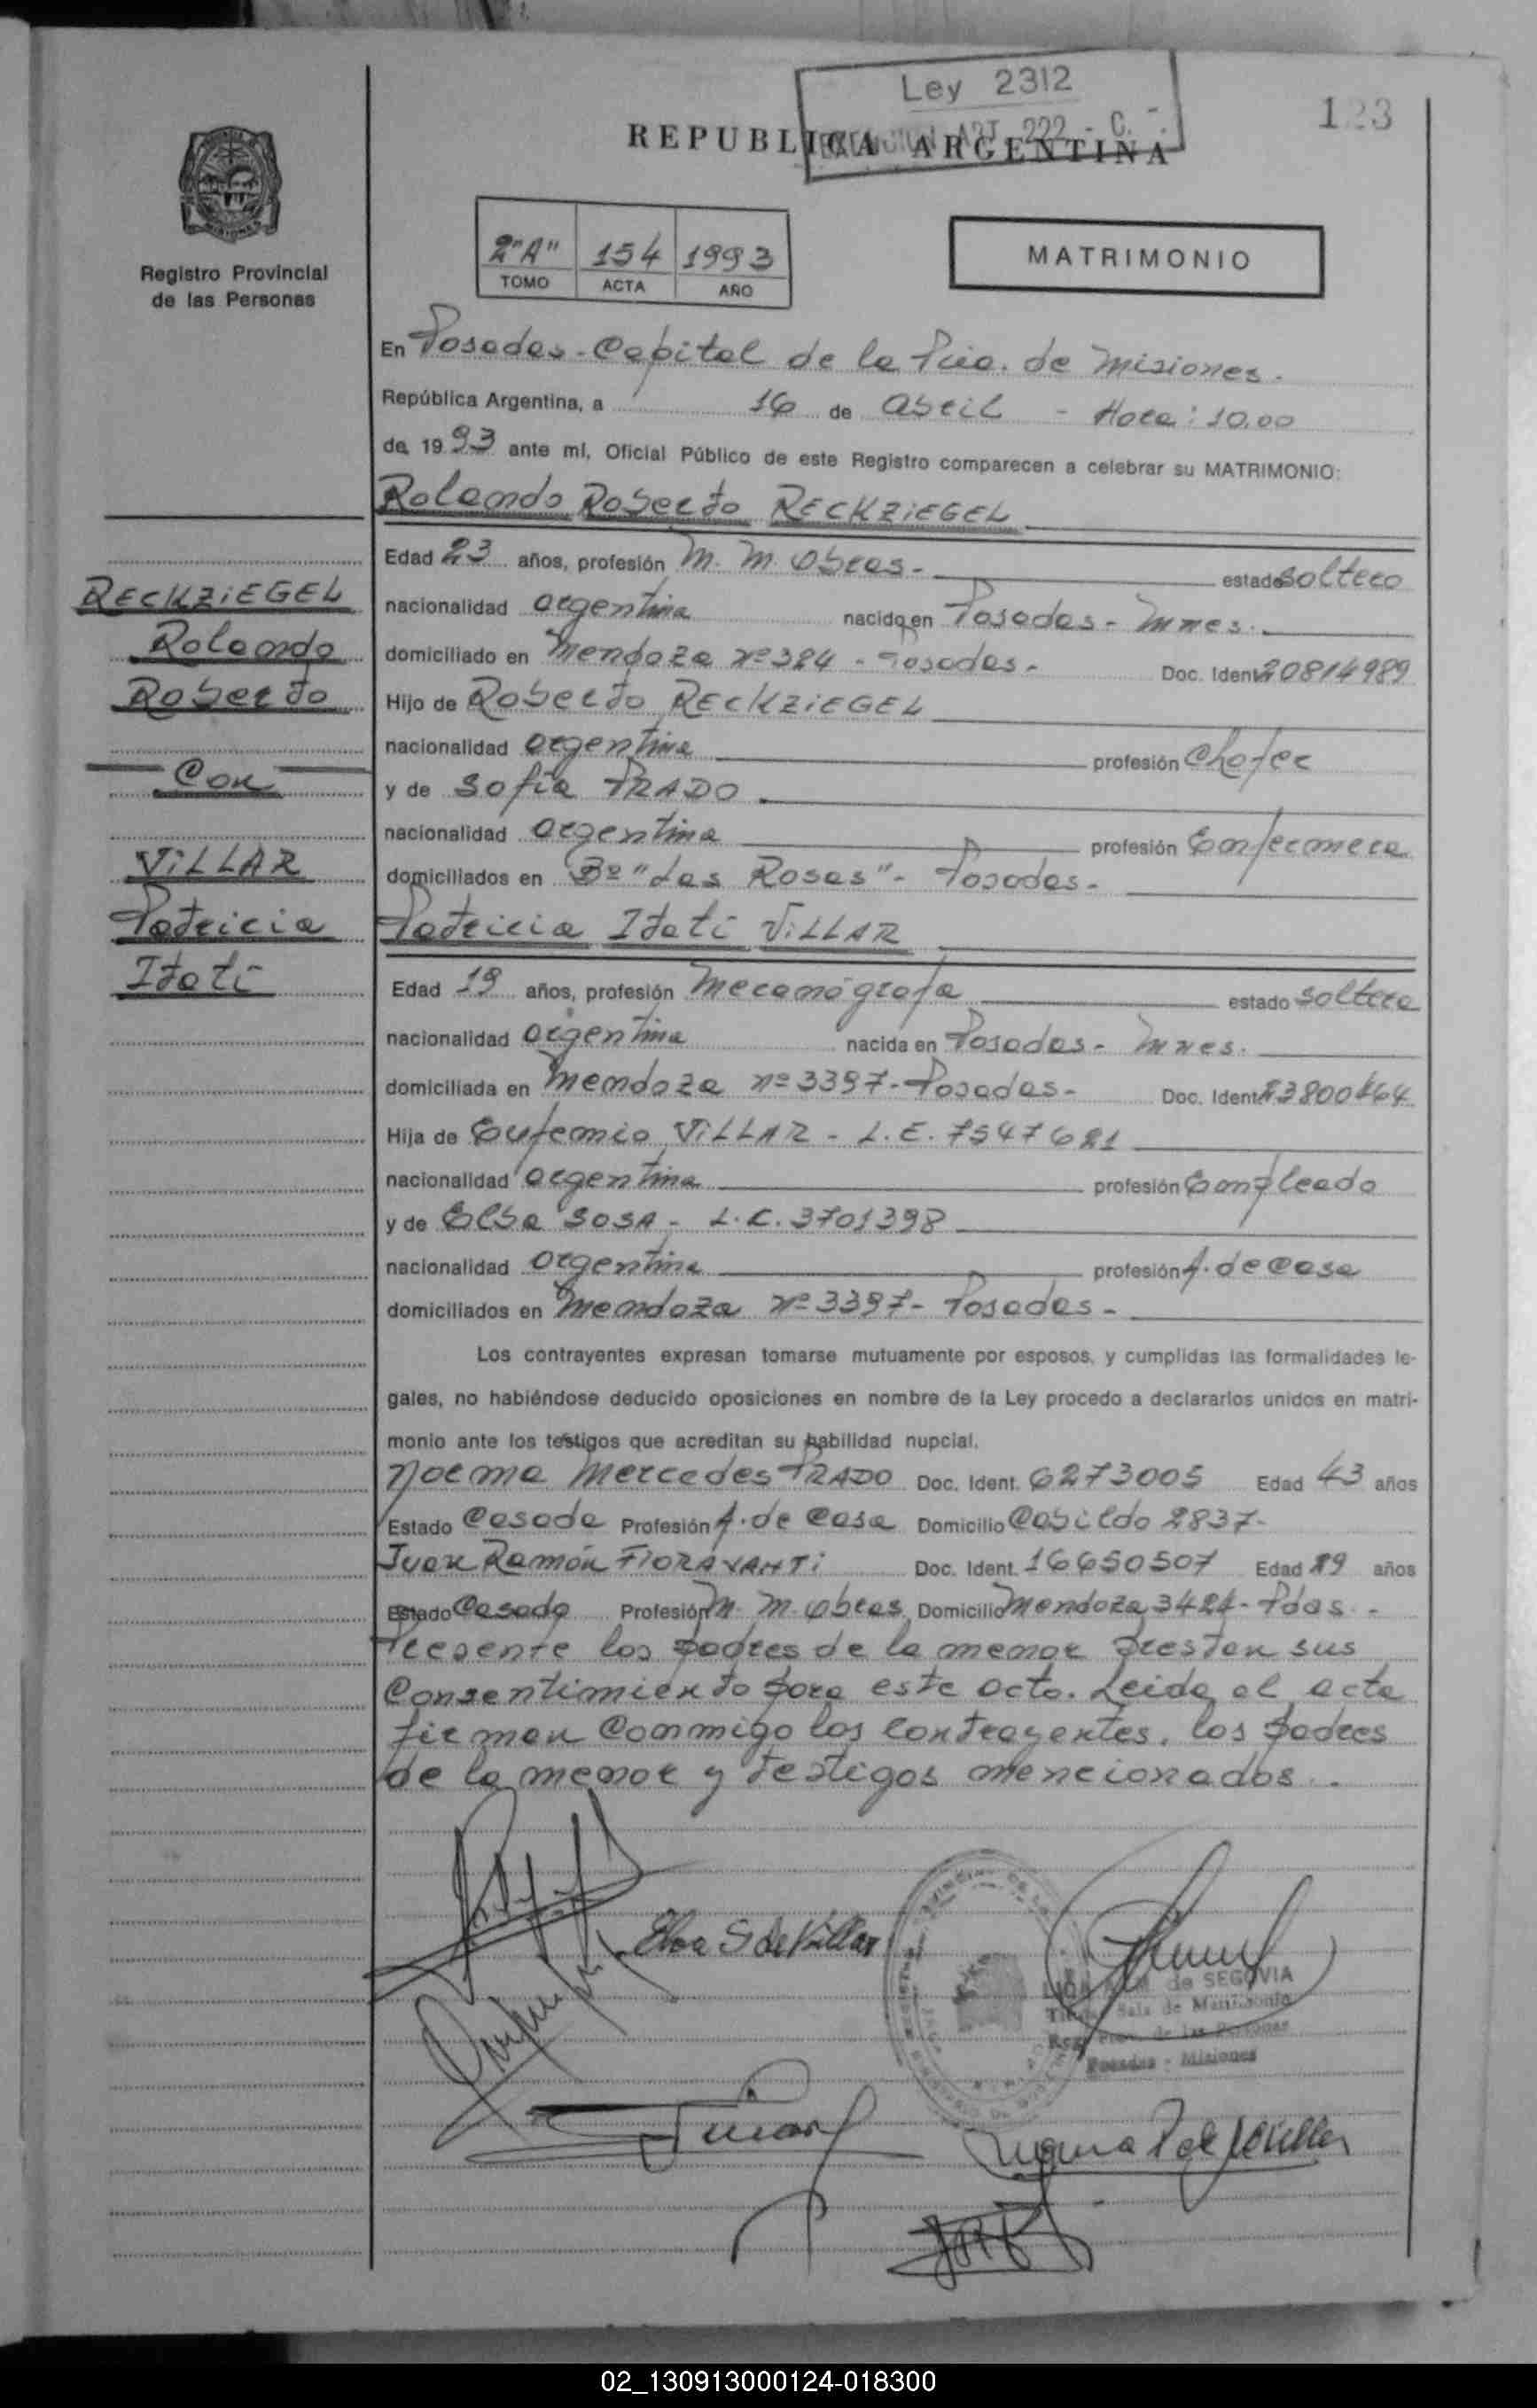 Ley 2312
123
REPUBLICA ARGENTINA
Registro Provincial
de las Personas
2"A" 154 1993
TOMO ACTA AÑO
MATRIMONIO
En Posadas - Capital de la Pcia. de Misiones.
República Argentina, a 16 de Abril - Hora: 10.00
de 1993 ante mí, Oficial Público de este Registro comparecen a celebrar su MATRIMONIO:
Rolando Roberto RECKZIEGEL
Edad 23 años, profesión M. M. Obras - estado soltero
RECKZIEGEL
Rolando
Roberto
Con
VILLAR
Patricia
Itatí
nacionalidad argentina nacido en Posadas - Mnes.
domiciliado en Mendoza nº 384 - Posadas - Doc. Ident. 20814989
Hijo de Roberto RECKZIEGEL
nacionalidad argentina profesión Chofer
y de Sofía PRADO
nacionalidad argentina profesión Enfermera
domiciliados en Bº "Las Rosas" - Posadas -
Patricia Itatí VILLAR
Edad 19 años, profesión Mecanógrafa estado soltera
nacionalidad argentina nacida en Posadas - Mnes.
domiciliada en Mendoza nº 3397 - Posadas - Doc. Ident.
Hija de Eufemio VILLAR - L.E. 7547621
nacionalidad argentina profesión Empleado
y de Elba SOSA - L.C. 3701398
nacionalidad argentina profesión A. de Casa
domiciliados en Mendoza nº 3397 - Posadas -
Los contrayentes expresan tomarse mutuamente por esposos, y cumplidas las formalidades le-
gales, no habiéndose deducido oposiciones en nombre de la Ley procedo a declararlos unidos en matri-
monio ante los testigos que acreditan su habilidad nupcial.
Noema Mercedes PRADO Doc. Ident. 6273005 Edad 43 años
Estado Casada Profesión A. de Casa Domicilio Cabildo 2837 -
Juan Ramón FIORAVANTI Doc. Ident. 16650507 Edad 29 años
Estado Casado Profesión M. M. Obras Domicilio Mendoza 3424 - Pdas. -
Presente los padres de la menor prestan sus
Consentimiento para este acto. Leida el acta
firman Conmigo los contrayentes, los padres
de la menor y testigos mencionados.
Elba S de Villar
de SEGOVIA
Sala de Matrimonio
de las Personas
Posadas - Misiones
02_130913000124-018300